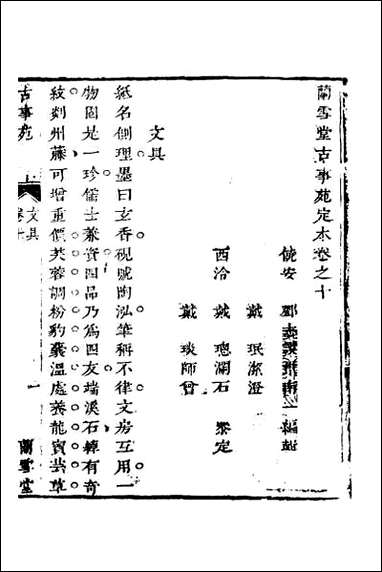 蘭雪堂古事苑定本卷之十
饒安 鄧
戴 珉潔澄
西洽 戴 璁瀾石 叅定
戴 琰師曾
文具
紙名側理墨曰玄香硯號陶泓筆稱不律文房互用一
物固是一珍儒士兼資四品乃爲四友端溪石繂有奇
紋剡州藤可增重價芙蓉調粉豹囊溫處養龍賓芸草
古事苑
文具
卷十
一
蘭雪堂